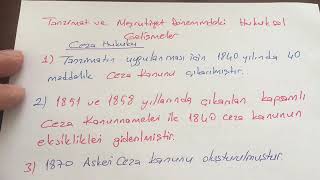 Tanzimat ve Meşrutiyet Dönemindeki Hukuksal
Gelişmeler
Ceza Hukuku
1) Tanzimatın uygulanması için 1840 yılında 40
maddelik Ceza Kanunu çıkarılmıştır.
2) 1851 ve 1858 yıllarında çıkarılan kapsamlı
Ceza Kanunnameleri ile 1840 ceza kanunun
eksiklikleri giderilmiştir.
3) 1870 Askeri Ceza kanunu oluşturulmuştur.